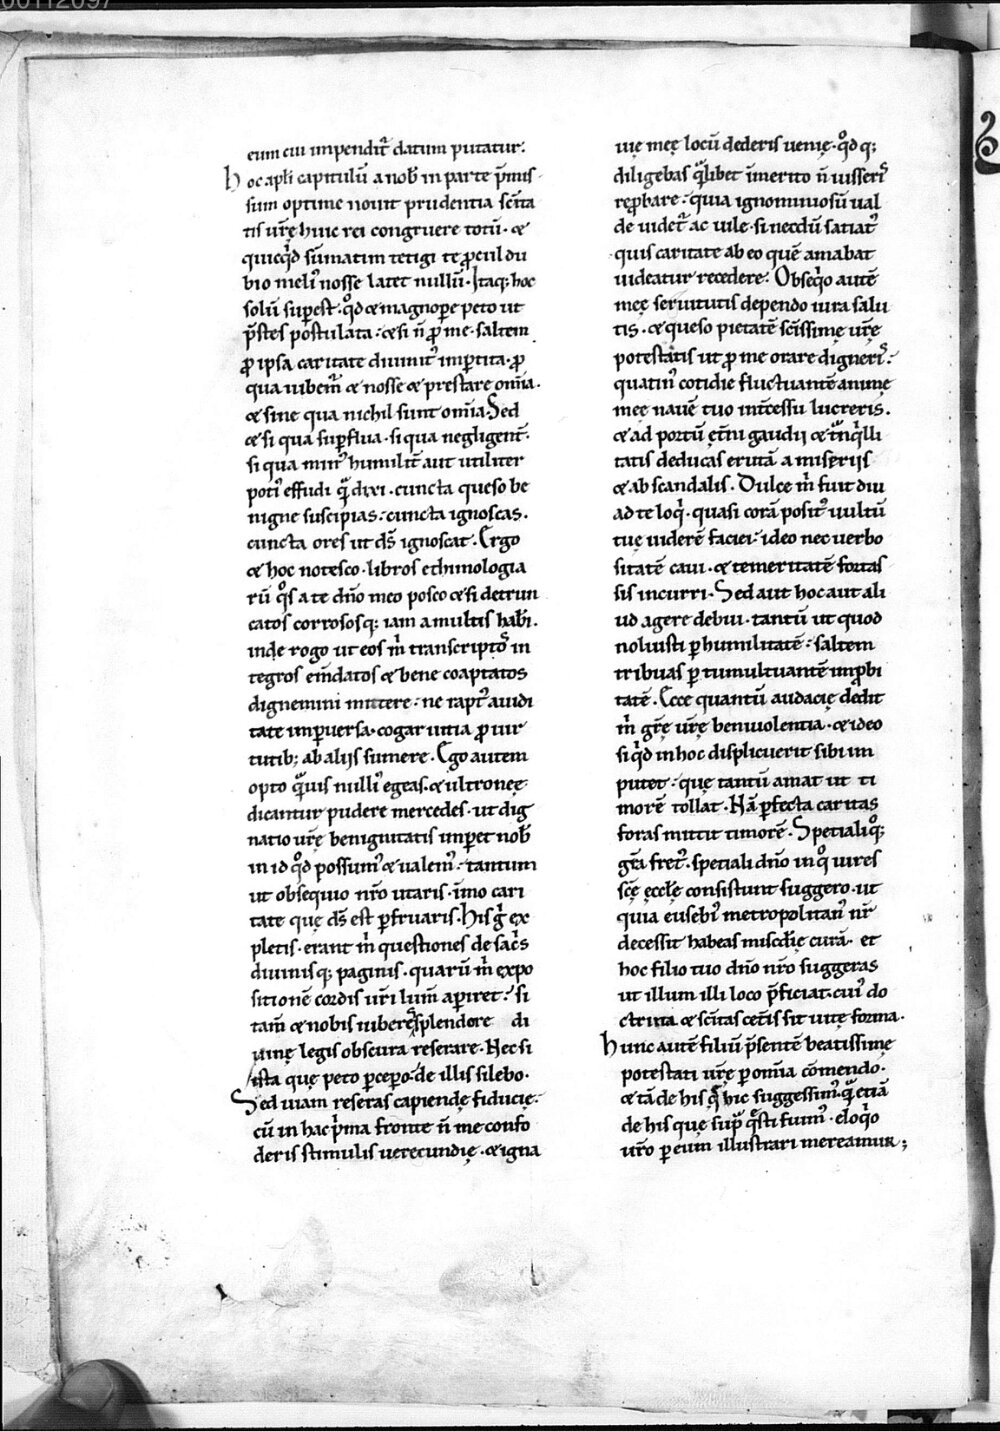 00112097
eum cui impendit᷑ datum putatur.
hoc apli capitulū a nob̄ in parte p̄mis
sum optime nouit prudentia sc̄ita
tis ur̄ę huic rei congruere totū. &
quicq̄d sūmatim tetigi te ꝓcul du
bio meli᷒ nosse latet nullū. Itaq; hoc
solū suꝑest. qͦd & magnoꝑe peto ut
p̄stes postulata. & si n̄ ꝓ me. saltem
ꝓ ipsa caritate diuinit᷒ imꝑtita. ꝓ
qua iubem̄ & nosse & prestare om̄ia.
& sine qua nichil sunt om̄ia. Sed
& si qua suꝑflua. si qua negligent̄.
si qua min᷒ humilit̄ aut utiliter
poti᷒ effudi qᷓ dixi. cuncta queso be
nigne suscipias. cuncta ignoscas.
cuncta ores ut d̄s ignoscat. Ergo
& hoc notesco. libros ethimologia
rū qͦs a te dn̄o meo posco & si detrun
catos corrososq; iam a multis hab̄i.
inde rogo ut eos m̄ transcriptos in
tegros em̄datos & bene coaptatos
dignemini mittere. ne rapt᷒ auidi
tate imꝑuersa. cogar uitia ꝓ uir
tutib; ab alijs sumere. Ego autem
opto qᷓuis nulli᷒ egeas. & ultroneę
dicantur pudere mercedes. ut dig
natio ur̄ę benignitatis imꝑet nob̄
in id qͦd possum᷒ & ualem᷒. tantum
ut obsequio nr̄o utaris. im̄o cari
tate quę d̄s est ꝑfruaris. His g̊ ex
pletis. erant m̄ questiones de sac̄s
diuinisq; paginis. quarū m̄ expo
sitionē cordis ur̄i lum̄ aꝑiret. si
tam̄ & nobis iubere splendore di
uinę legis obscura reserare. Nec si
ista quę peto ꝑcepo. de illis silebo.
Sed uiam reseras capiendę fiducię.
cū in hac p̄ma fronte n̄ me confo
deris stimulis uerecundię. & igna
uię meę locū dederis uenię. qͦd q;
diligebas qᷓlibet īmerito n̄ iusseri᷒
reꝓbare. quia ignominiosū ual
de uidet᷑ ac uile. si necdū satiat᷒
quis caritate ab eo quē amabat
uideatur recedere. Obseq̊o autē
meę seruitutis dependo iura salu
tis. & queso pietatē sc̄issimę ur̄ę
potestatis ut ꝓ me orare digneri᷒.
quatin᷒ cotidie fluctuantē animę
meę nauē tuo int̄cessu lucreris.
& ad portū et̄ni gaudii & t̄nq̊lli
tatis deducas erutā a miseriis
& ab scandalis. Dulce m̄ fuit diu
ad te loqͥ. quasi corā posit᷒ uultū
tuę uiderē faciei. ideo nec uerbo
sitatē caui. & temeritatē fortas
sis incurri. Sed aut hoc aut ali
ud agere debui. tantū ut quod
noluisti ꝑ humilitatē. saltem
tribuas ꝑ tumultuantē imꝓbi
tatē. Ecce quantū audacię dedit
m̄ gr̄ę ur̄ę beniuolentia. & ideo
si q̊d in hoc displicuerit sibi im
putet. quę tantū amat ut ti
morē tollat. Nā ꝑfecta caritas
foras mittit timorē. Specialiqͦ;
gr̄a fret᷒. speciali dn̄o in qͦ uires
sc̄ę eccl̄ę consistunt suggero. ut
quia eusebi᷒ metropolitan᷒ nr̄
decessit habeas misc̄die curā. et
hoc filio tuo dn̄o nr̄o suggeras
ut illum illi loco p̄ficiat. cui᷒ do
ctrina & sc̄itas cet̄is sit uitę forma.
hunc autē filiū p̄sentē beatissimę
potestati ur̄ę ꝑ om̄ia cōmendo.
& tā de his q̄ hic suggessim᷒. qᷓ etiā
de his quę supᷓ qͥsti sum᷒. eloqͥo
ur̄o ꝑ eum illustrari mereamur;